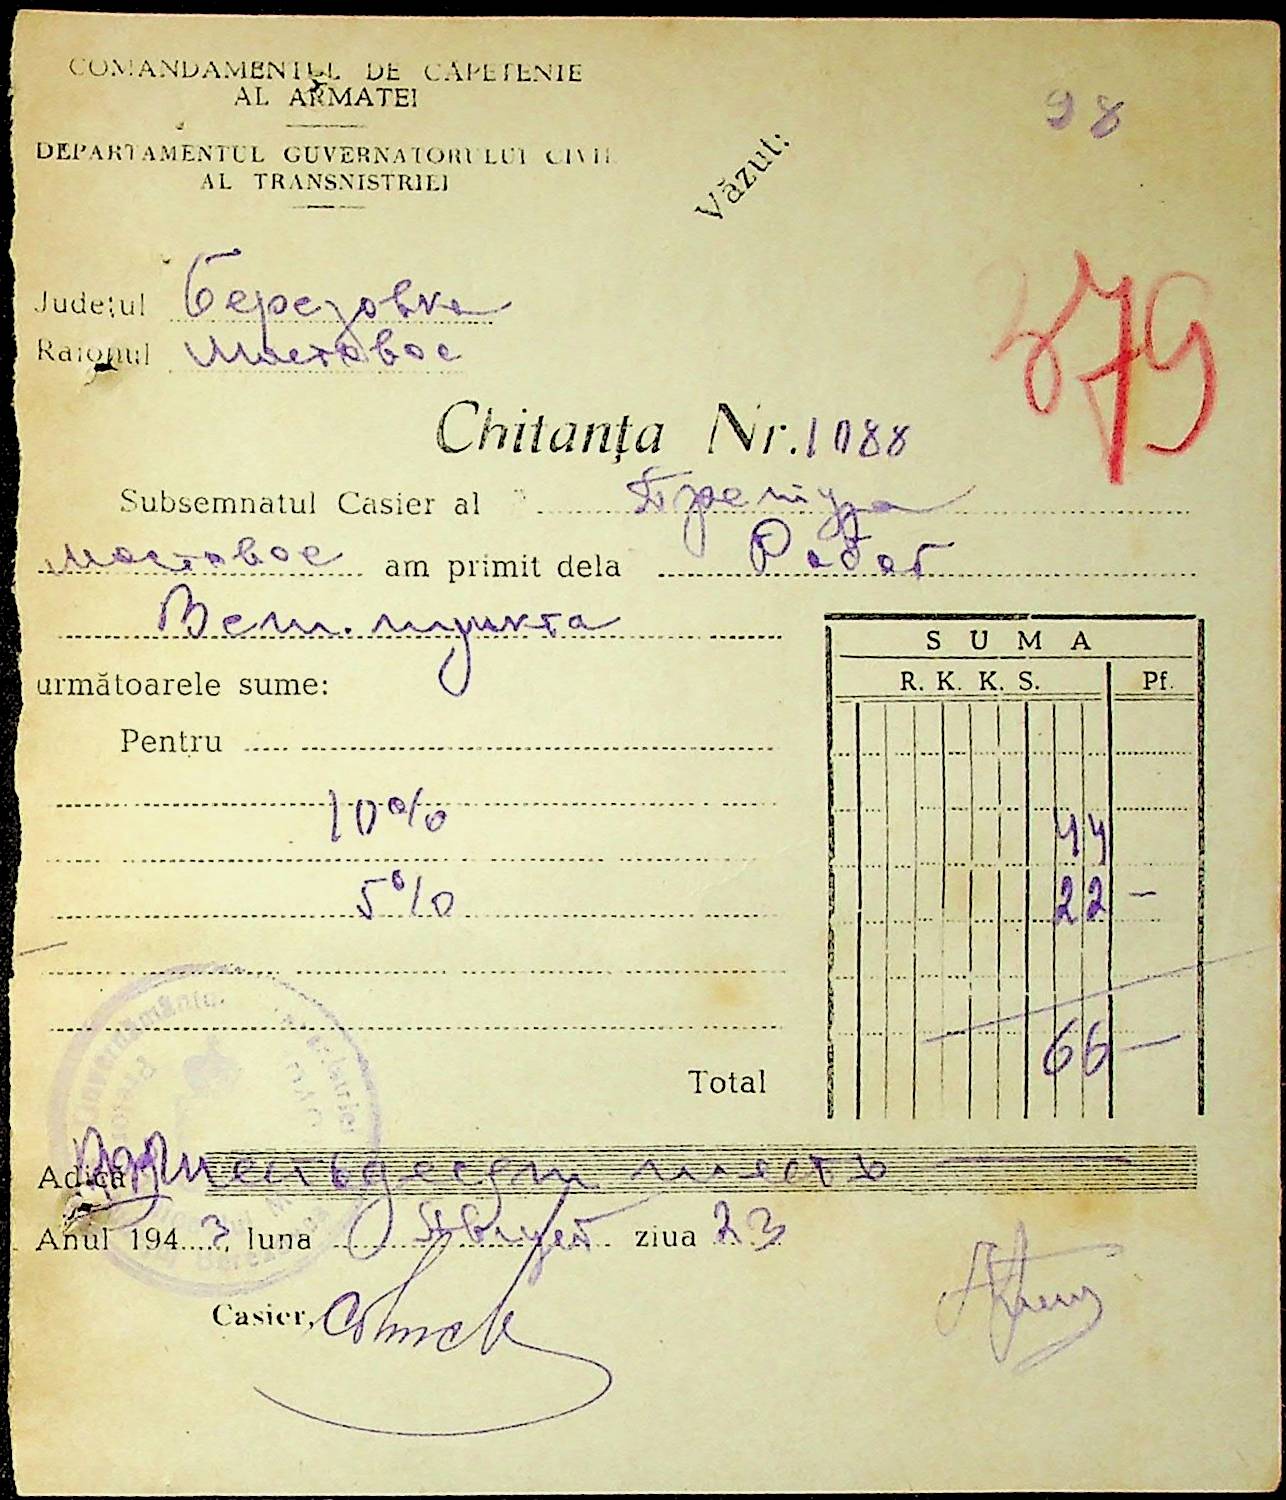 COMANDAMENTUL DE CAPETENIE
AL ARMATEI
98
DEPARTAMENTUL GUVERNATORULUI CIVIL
AL TRANSNISTRIEI
Văzut:
379
Județul Березовка
Raionul Мостовое
Chitanța Nr. 1088
Subsemnatul Casier al Претура
Мостовое am primit dela Работ
Вет. пункта
SUMA
R. K. K. S. Pf.
următoarele sume:
Pentru
10% 44
5% 22 —
Total 66 —
Adică шестьдесят шесть
Anul 1943, luna ziua 23
Casier,